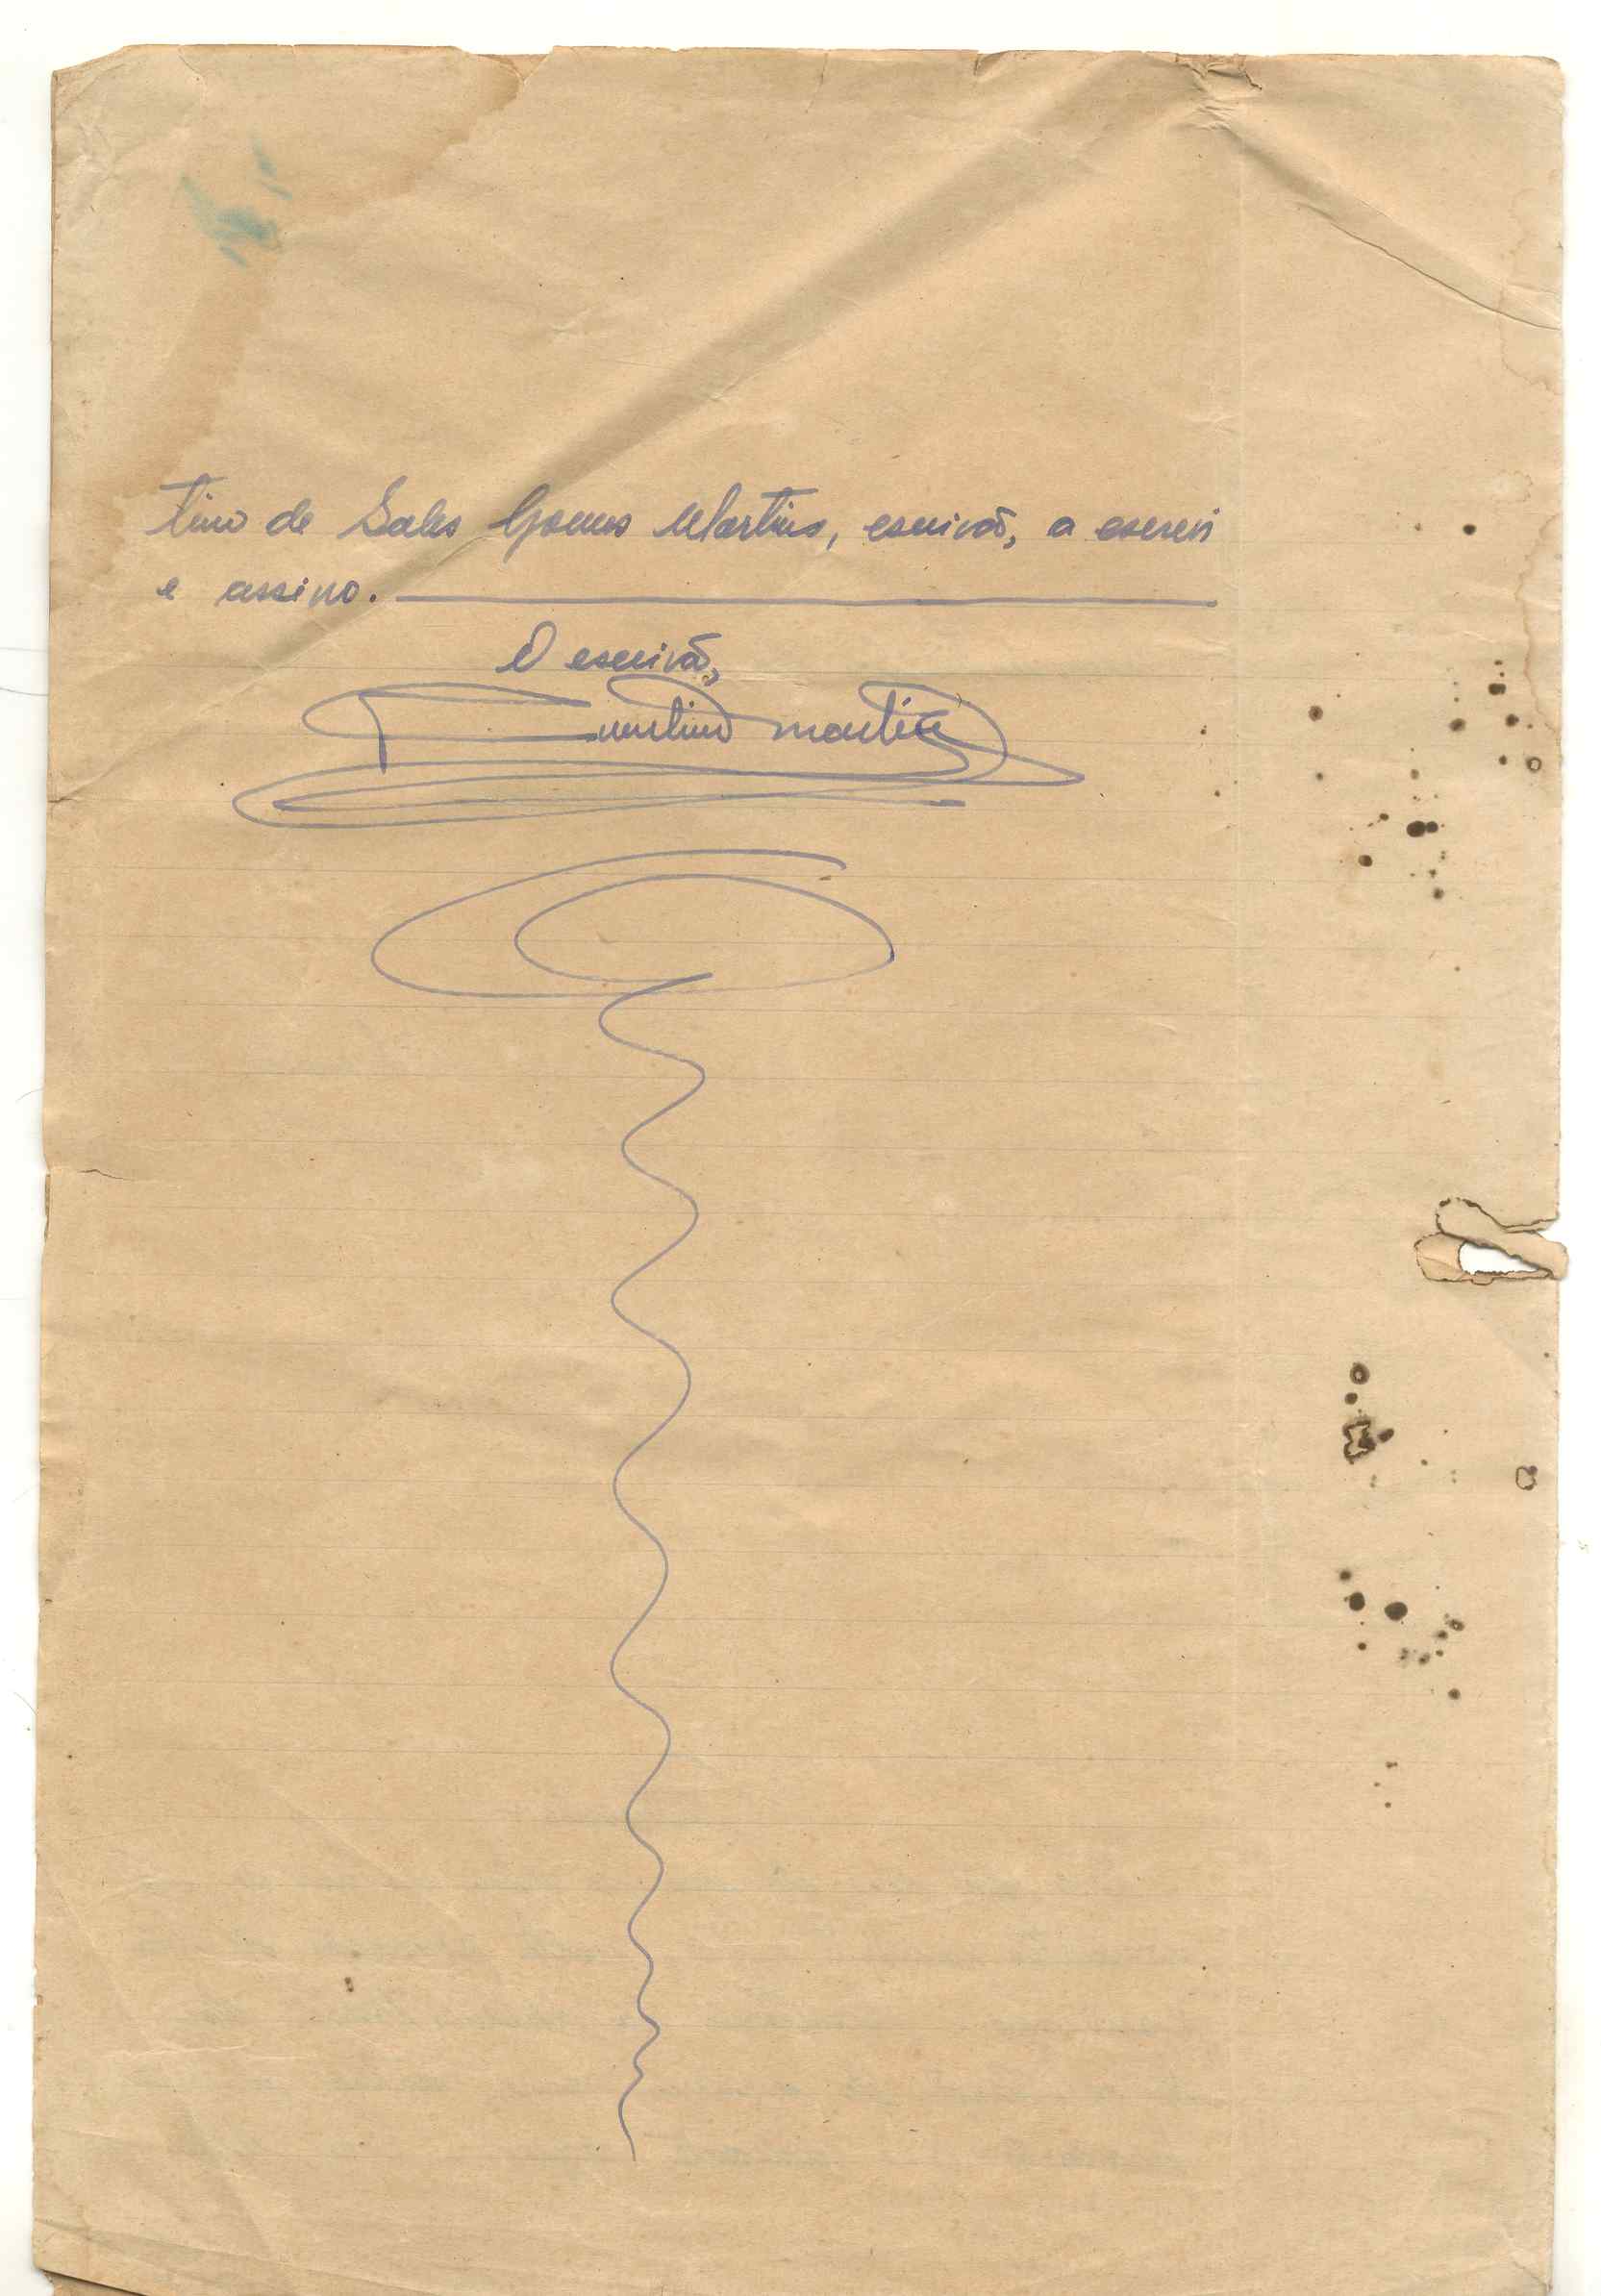 tino de Sales Gomes Martins, escrivão, a escrevi
e assino.
O escrivão,
Martins